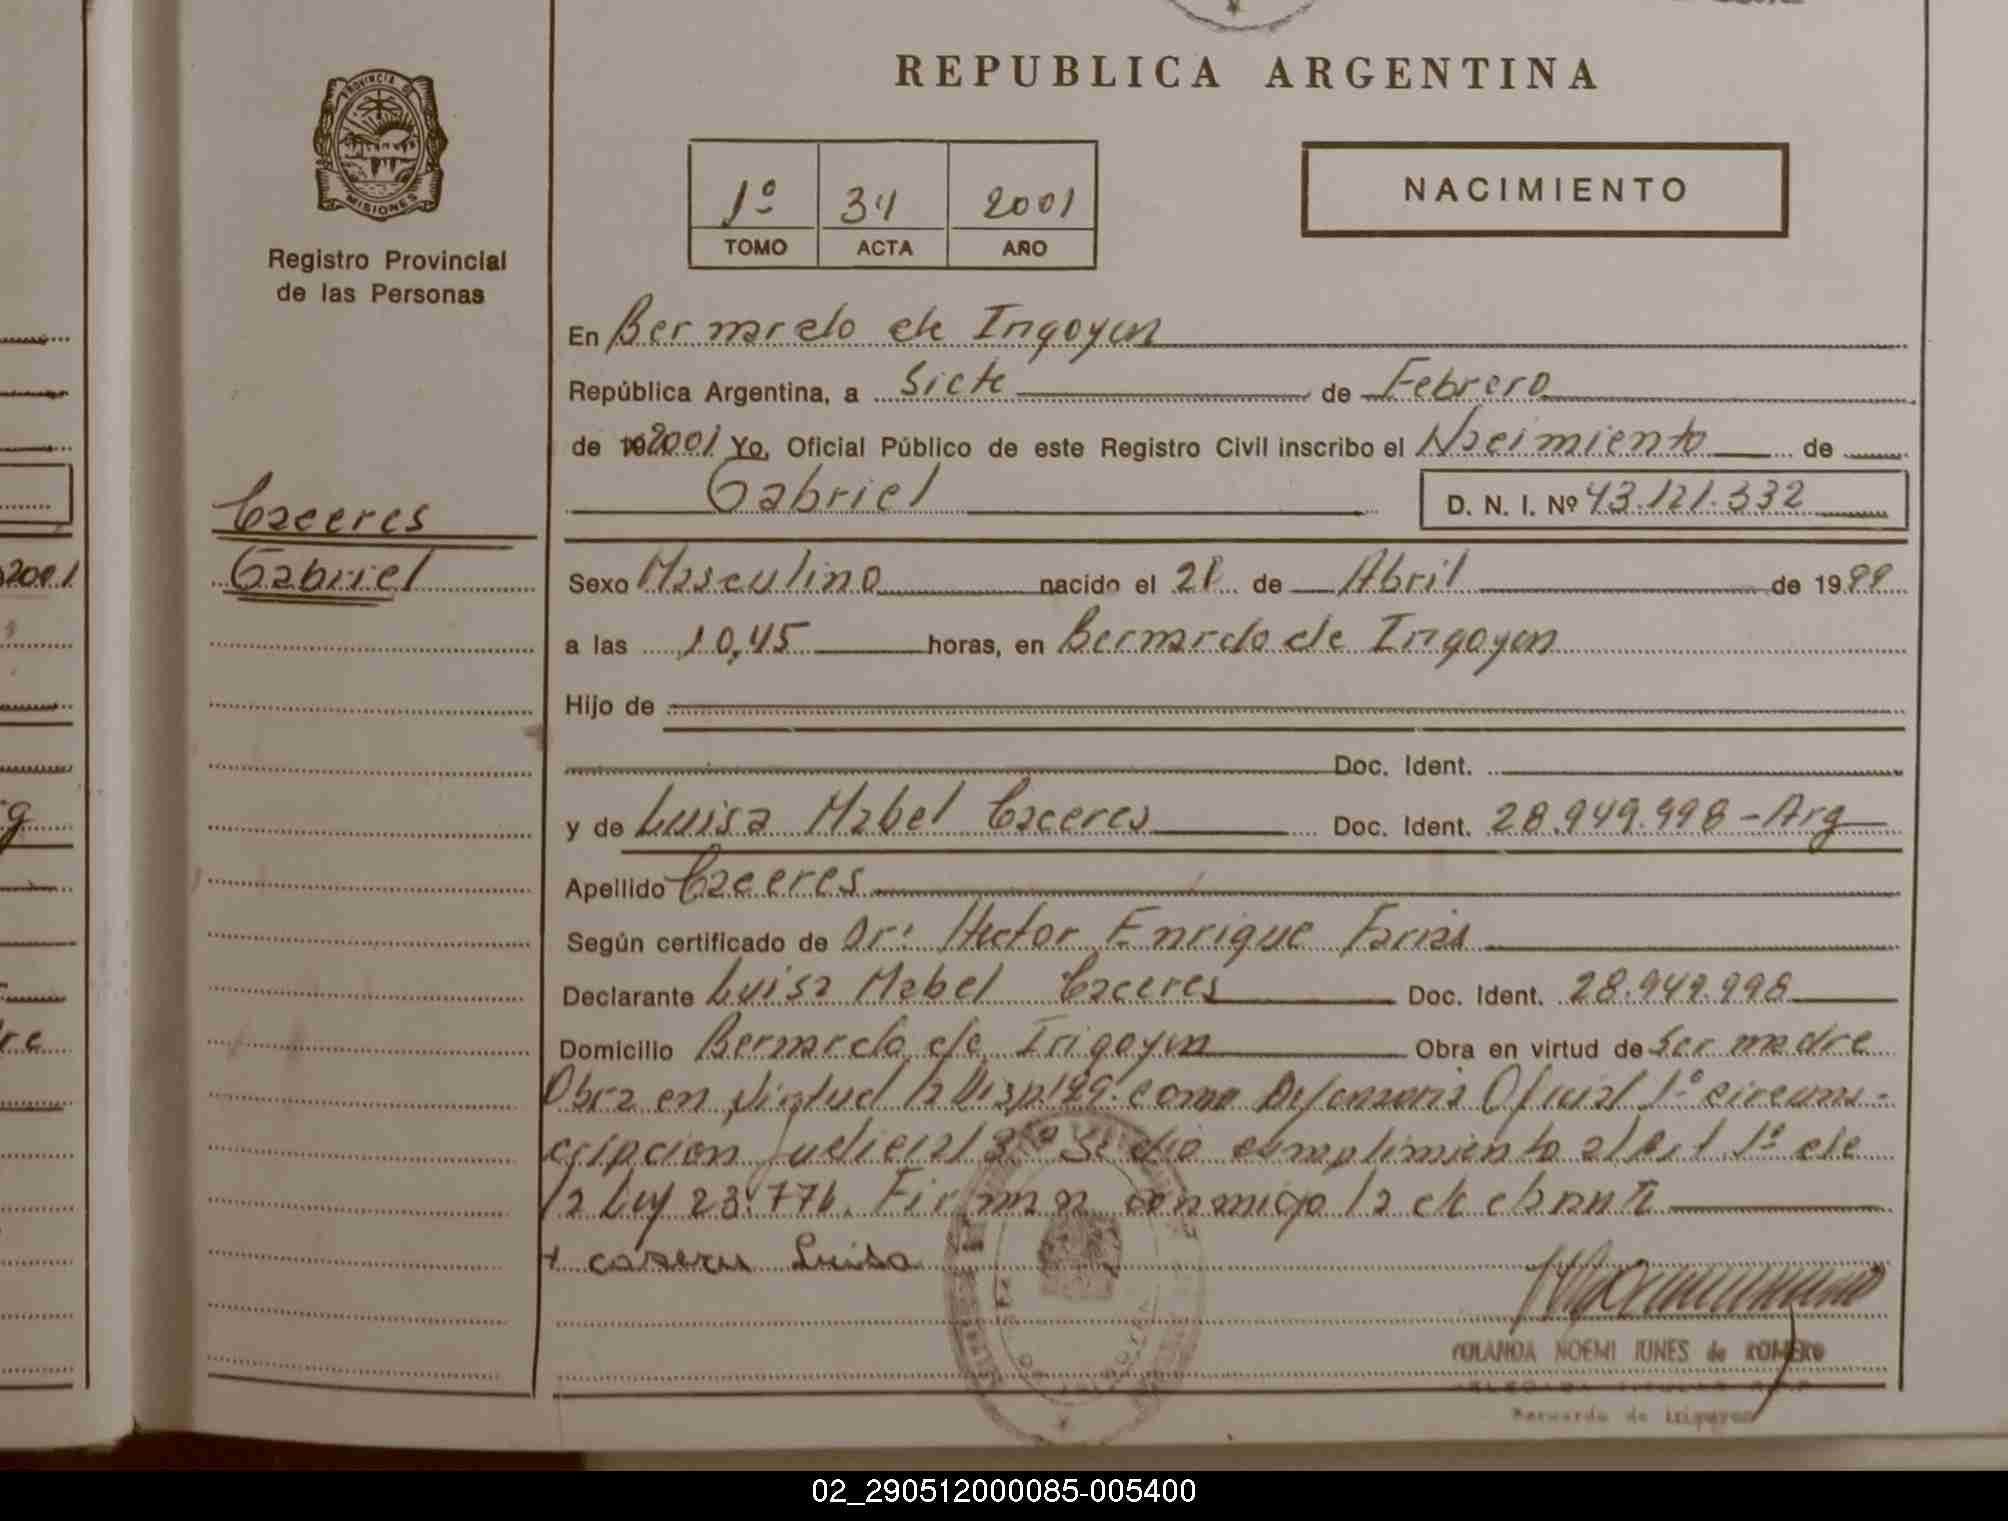 REPUBLICA ARGENTINA
PROVINCIA DE
MISIONES
Registro Provincial
de las Personas
1º 34 2001
TOMO ACTA AÑO
NACIMIENTO
En Bernardo de Irigoyen
República Argentina, a Siete de Febrero
de 192001 Yo, Oficial Público de este Registro Civil inscribo el Nacimiento de
Gabriel D. N. I. Nº 43.121.332
Caceres
Gabriel
Sexo Masculino nacido el 21 de Abril de 1999
a las 10,45 horas, en Bernardo de Irigoyen
Hijo de
Doc. Ident.
y de Luisa Mabel Caceres Doc. Ident. 28.949.998-Arg
Apellido Caceres
Según certificado de Dr. Hector Enrique Farias
Declarante Luisa Mabel Caceres Doc. Ident. 28.949.998
Domicilio Bernardo de Irigoyen Obra en virtud de Ser madre
Obra en virtud la Disp. 199. como Defensoria Oficial 1º circuns-
cripcion Judicial 3º Se dio cumplimiento al art 1º de
la Ley 23.776. Firman conmigo la
+ Luisa
YOLANDA NOEMI JUNES de ROMERO
Bernardo de Irigoyen
2001
02_290512000085-005400